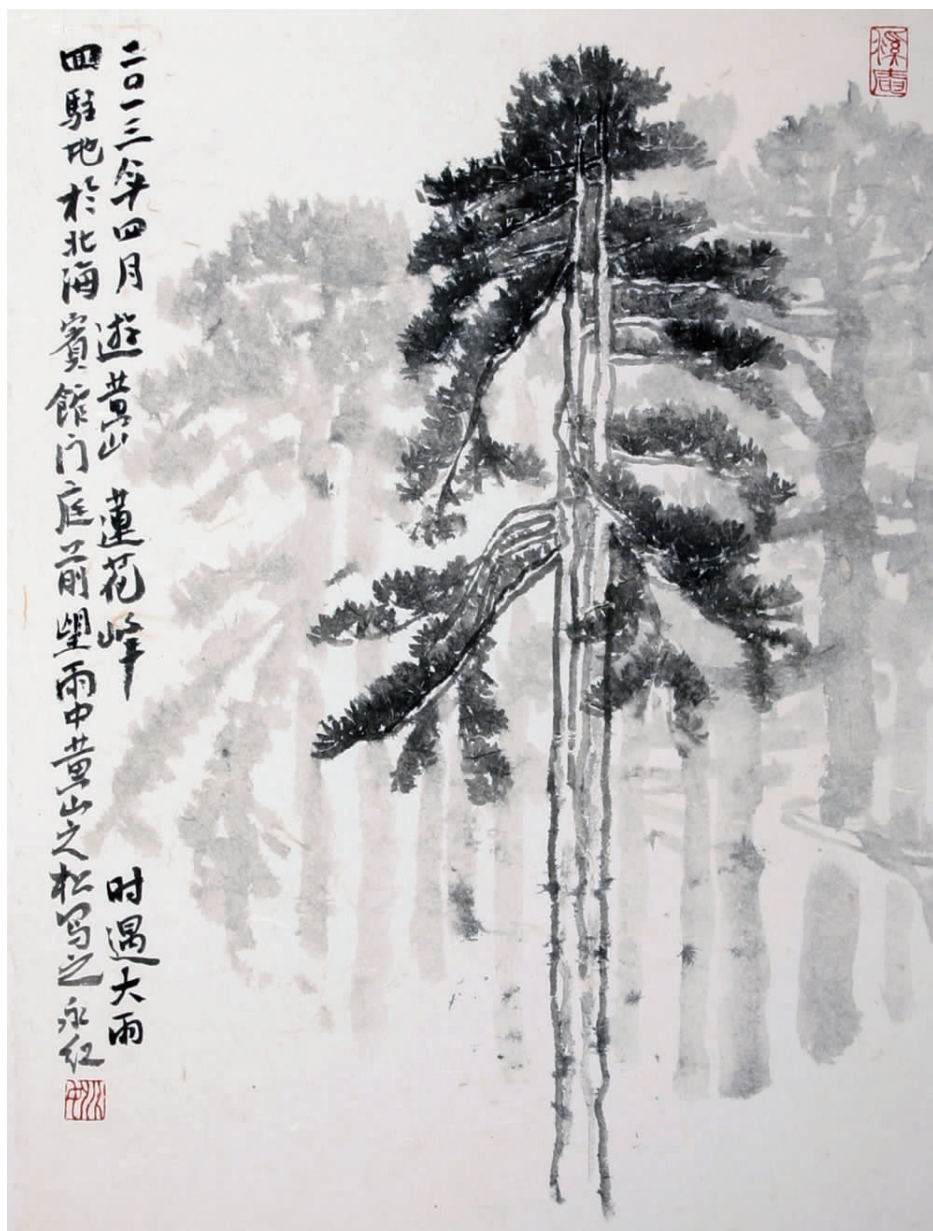 二〇一三年四月遊黄山蓮花峰时遇大雨
回駐地於北海賓館门庭前望雨中黄山之松写之永红